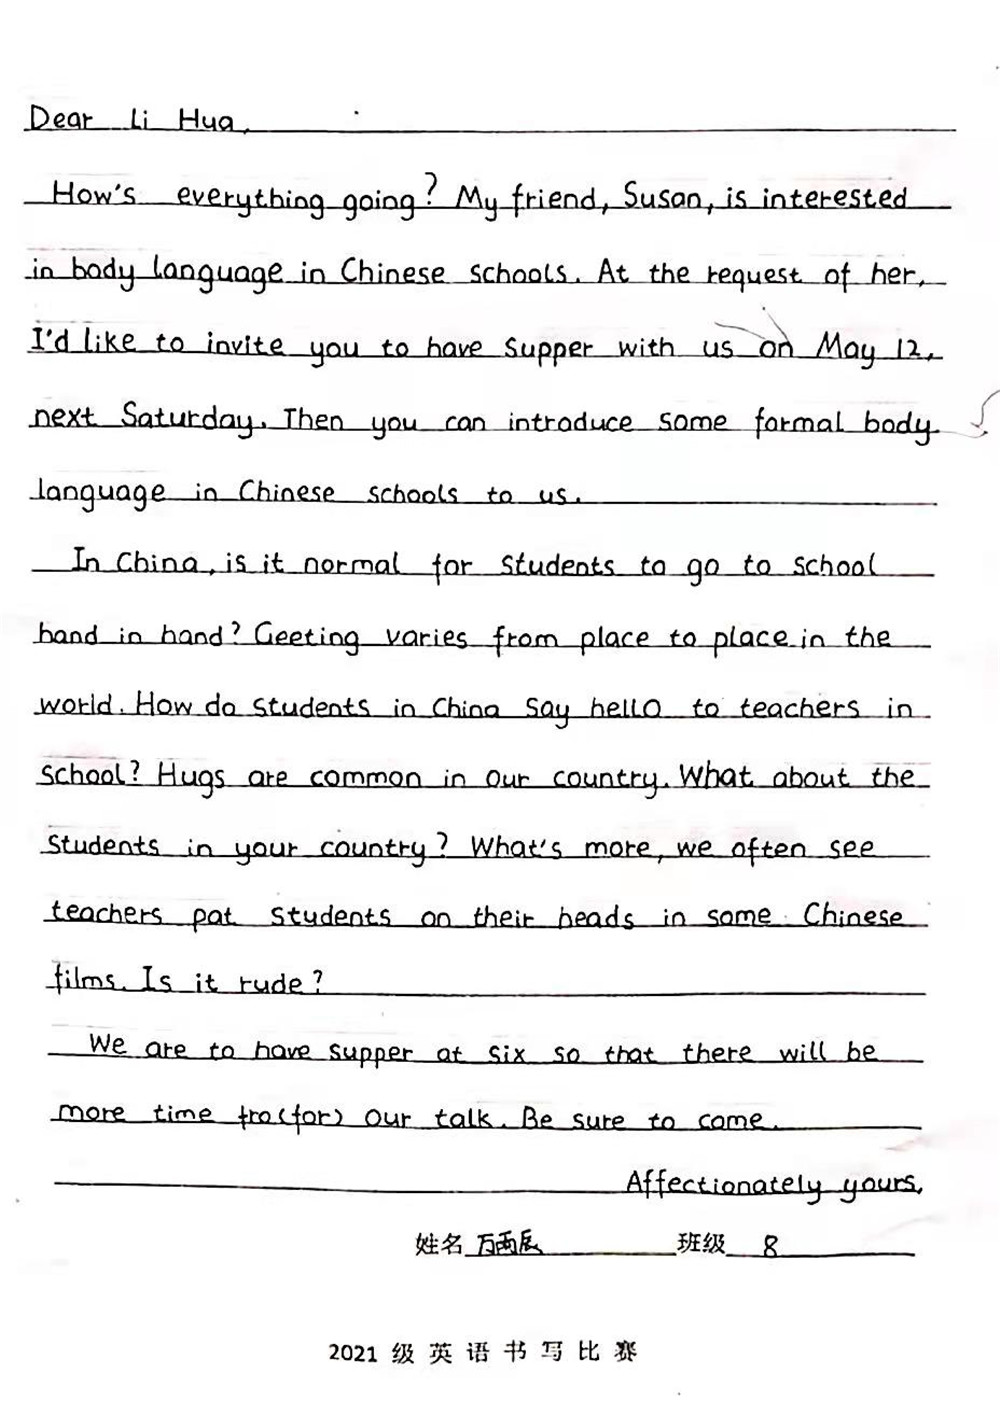 Dear Li Hua,
How's everything going? My friend, Susan, is interested
in body language in Chinese schools. At the request of her,
I'd like to invite you to have supper with us on May 12,
next Saturday. Then you can introduce some formal body
language in Chinese schools to us.
In China, is it normal for students to go to school
hand in hand? Geeting varies from place to place in the
world. How do students in China say hello to teachers in
school? Hugs are common in our country. What about the
students in your country? What's more, we often see
teachers pat students on their heads in some Chinese
films. Is it rude?
We are to have supper at six so that there will be
more time fro(for) our talk. Be sure to come.
Affectionately yours,
姓名 万雨辰 班级 8
2021 级英语书写比赛